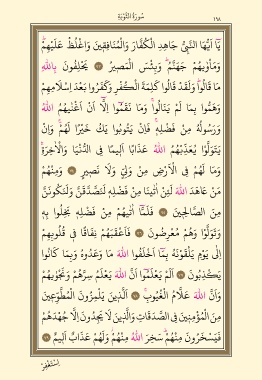 سُورَةُ التَّوْبَةِ ١٩٨
يَٓا اَيُّهَا النَّبِيُّ جَاهِدِ الْكُفَّارَ وَالْمُنَافِقِينَ وَاغْلُظْ عَلَيْهِمْۜ
وَمَأْوٰيهُمْ جَهَنَّمُۜ وَبِئْسَ الْمَصِيرُ ٧٣ يَحْلِفُونَ بِاللّٰهِ
مَا قَالُواۜ وَلَقَدْ قَالُوا كَلِمَةَ الْكُفْرِ وَكَفَرُوا بَعْدَ اِسْلَامِهِمْ
وَهَمُّوا بِمَا لَمْ يَنَالُواۚ وَمَا نَقَمُٓوا اِلَّٓا اَنْ اَغْنٰيهُمُ اللّٰهُ
وَرَسُولُهُ مِنْ فَضْلِه۪ۚ فَاِنْ يَتُوبُوا يَكُ خَيْرًا لَهُمْۚ وَاِنْ
يَتَوَلَّوْا يُعَذِّبْهُمُ اللّٰهُ عَذَابًا اَل۪يمًا فِي الدُّنْيَا وَالْاٰخِرَةِۚ
وَمَا لَهُمْ فِي الْاَرْضِ مِنْ وَلِيٍّ وَلَا نَص۪يرٍ ٧٤ وَمِنْهُمْ
مَنْ عَاهَدَ اللّٰهَ لَئِنْ اٰتٰينَا مِنْ فَضْلِه۪ لَنَصَّدَّقَنَّ وَلَنَكُونَنَّ
مِنَ الصَّالِح۪ينَ ٧٥ فَلَمَّٓا اٰتٰيهُمْ مِنْ فَضْلِه۪ بَخِلُوا بِه۪
وَتَوَلَّوْا وَهُمْ مُعْرِضُونَ ٧٦ فَاَعْقَبَهُمْ نِفَاقًا ف۪ي قُلُوبِهِمْ
اِلٰى يَوْمِ يَلْقَوْنَهُ بِمَٓا اَخْلَفُوا اللّٰهَ مَا وَعَدُوهُ وَبِمَا كَانُوا
يَكْذِبُونَ ٧٧ اَلَمْ يَعْلَمُٓوا اَنَّ اللّٰهَ يَعْلَمُ سِرَّهُمْ وَنَجْوٰيهُمْ
وَاَنَّ اللّٰهَ عَلَّامُ الْغُيُوبِۚ ٧٨ اَلَّذ۪ينَ يَلْمِزُونَ الْمُطَّوِّع۪ينَ
مِنَ الْمُؤْمِن۪ينَ فِي الصَّدَقَاتِ وَالَّذ۪ينَ لَا يَجِدُونَ اِلَّا جُهْدَهُمْ
فَيَسْخَرُونَ مِنْهُمْۜ سَخِرَ اللّٰهُ مِنْهُمْۘ وَلَهُمْ عَذَابٌ اَل۪يمٌ ٧٩
اِسْتَغْفِرْ